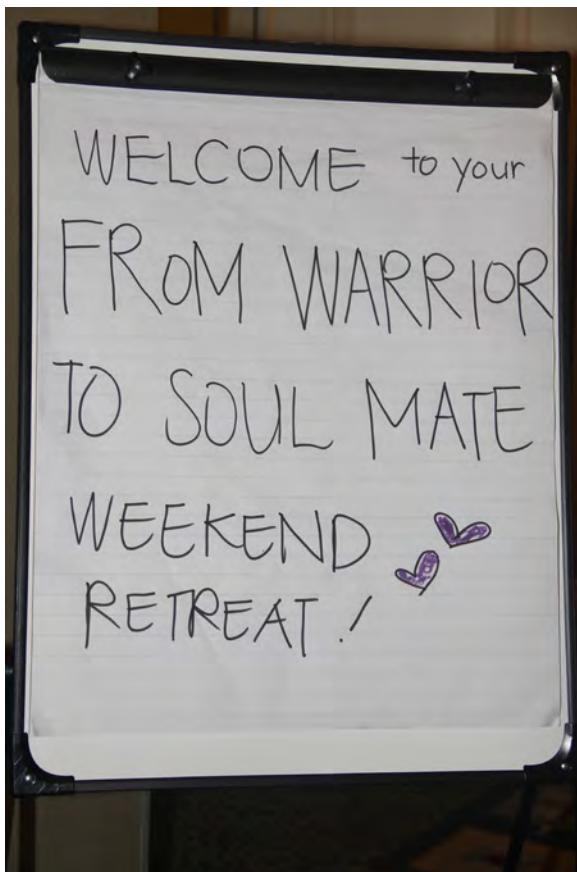 WELCOME to your
FROM WARRIOR
TO SOUL MATE
WEEKEND
RETREAT!